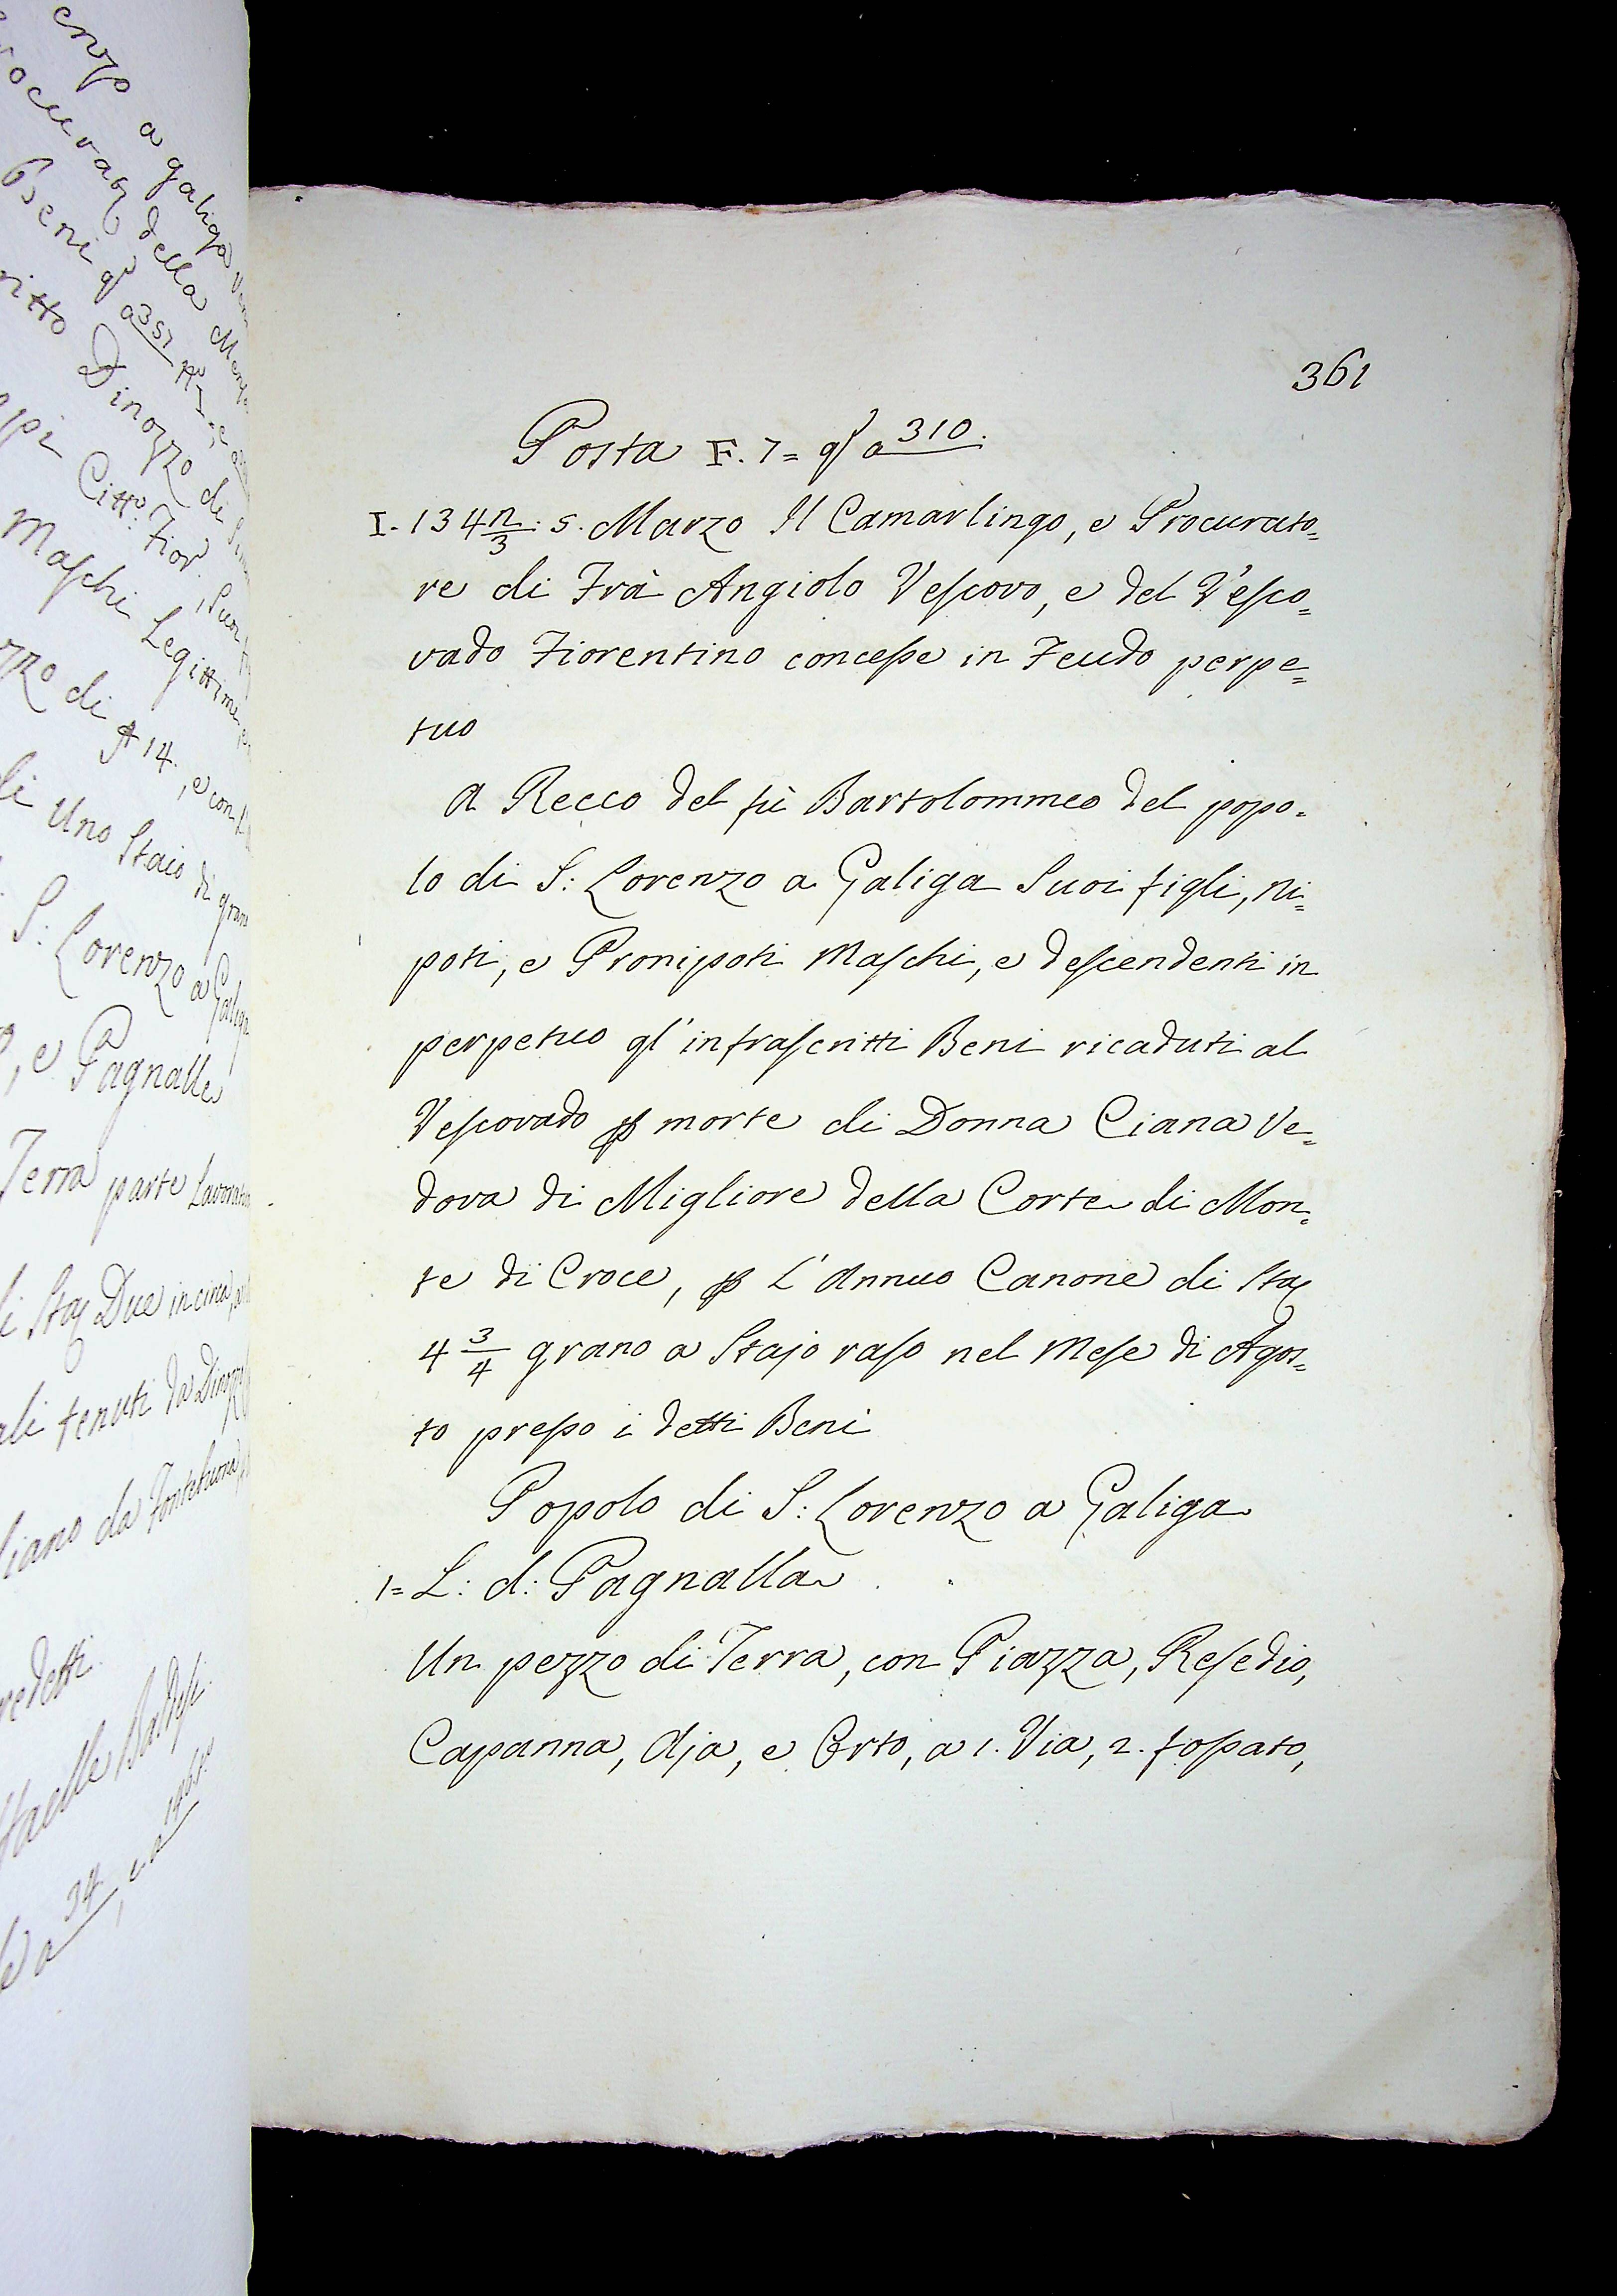 enzo a Galiga
della
Beni qĺ a 351
ritto Dinozzo di
Citt: Fior
Maschi Legittimi
zzo di 14, e con
li Uno Staio di gran
S: Lorenzo a Galiga
, e Pagnalle
Terra parte Lavorat
i Staj Due in circa
ali tenuti da Dinozzo
liano da Fontebuona
redetti
34
361
Posta F. 7= qĺ a 310.
I. 134 2/3. 5. Marzo Il Camarlingo, e Procurato=
re di Frà Angiolo Veſcovo, e del Veſco=
vado Fiorentino conceſse in Feudo perpe=
tuo
A Recco del fù Bartolommeo del popo=
lo di S: Lorenzo a Galiga Suoi figli, Ni=
poti, e Pronipoti Maſchi, e deſcendenti in
perpetuo gl'infraſcritti Beni ricaduti al
Veſcovado ꝑ morte di Donna Ciana Ve=
dova di Migliore della Corte di Mon=
te di Croce, ꝑ L'Annuo Canone di Staj
4 3/4 grano a Stajo raſo nel Meſe di Agos=
to preſso i detti Beni
Popolo di S: Lorenzo a Galiga
1= L: d: Pagnalla
Un pezzo di Terra, con Piazza, Reſedio,
Capanna, Aja, e Orto, a 1. Via, 2. foſsato,